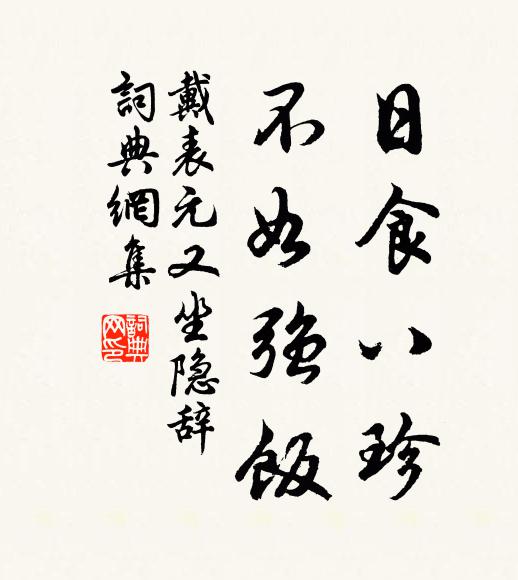 日食八珍
不如强飯
戴表元又坐隐辞
詞典網集
詞典网印